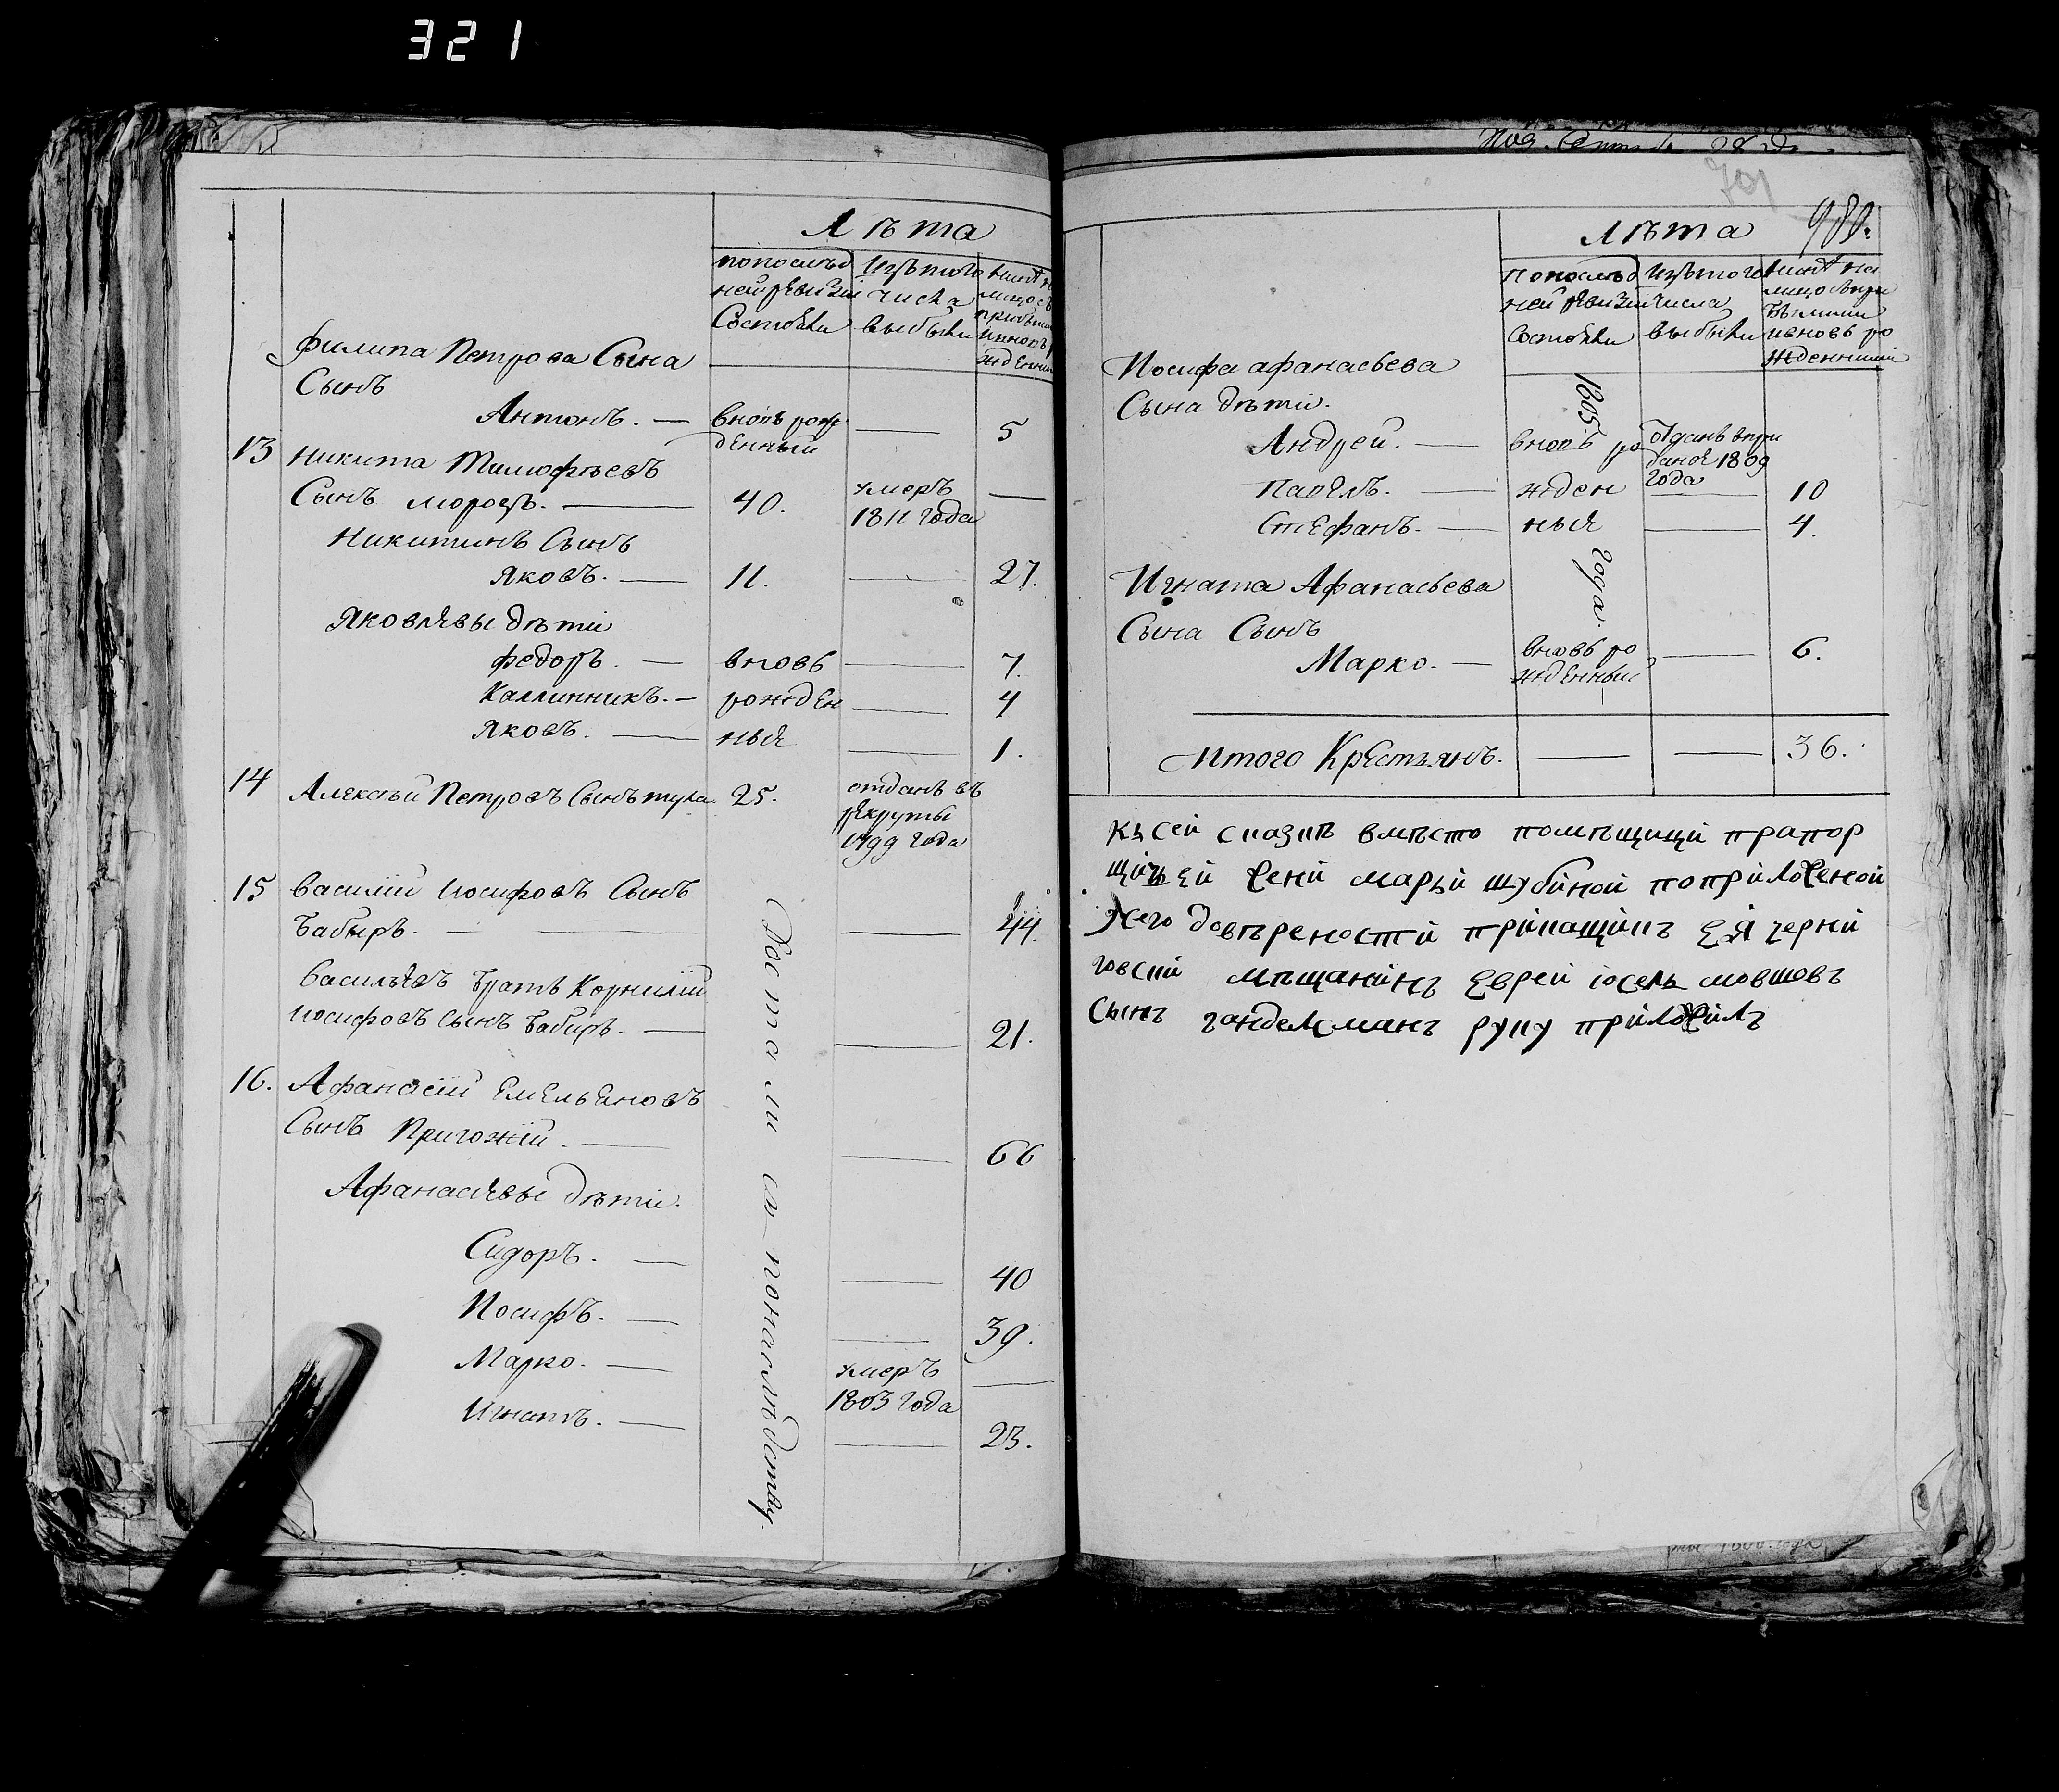 321
Лѣта
попослѣд
ней ревизіи
Состояли
Изъ того
числа
выбыли
Филипа Петрова Сына
Сынъ
Антонъ. — вновь рож — 5
денный
13 Никита Тимофѣевъ
Сынъ морозъ. — 40. умеръ —
1811 года
Никитинъ Сынъ
Яковъ. — 11. — 27.
Яковлевы дѣти
Федоръ. — вновь — 7.
Каллинникъ. — рожден — 4
Яковъ. — ныя — 1.
14 Алексѣй Петровъ Сынъ 25. отданъ въ
рекруты
1799 года
15 Василій Иосифовъ Сынъ
Бабыръ. — — 44.
Васильевъ братъ Корнилій
Иосифовъ Сынъ Бабыръ. — — 21.
16. Афанасій Емельяновъ
Сынъ Пригожій. — — 66
Афанасьевы дѣти.
Сидоръ. — — 40
Иосифъ. — — 39.
Марко. — умеръ —
1803 года
Игнатъ. — — 23.
Достались по наслѣдству.
701
Лѣта
попослѣд
ней ревизіи
Состояли
Изъ того
числа
выбыли
нынѣ на
лицо съ при
былыми
ивновь ро
жденными
Иосифа Афанасьева
Сына дѣти.
1805
Андрей. — вновь ро Отданъ впри
даное 1809
года
Павелъ. — жден — 10
Стефанъ. — ныя — 4.
года.
Игната Афанасьева
Сына Сынъ
Марко. — вновь ро — 6.
жденный
Итого Крестьянъ. — — 36.
Къ сей сказкѣ вмѣсто помѣщици прапор
щицей жени марьи шубиной поприложеной
него довѣрености прикащикъ ея черни
говскій мѣщанинъ еврей іосель мовшовъ
Сынъ гандельманъ руку приложилъ